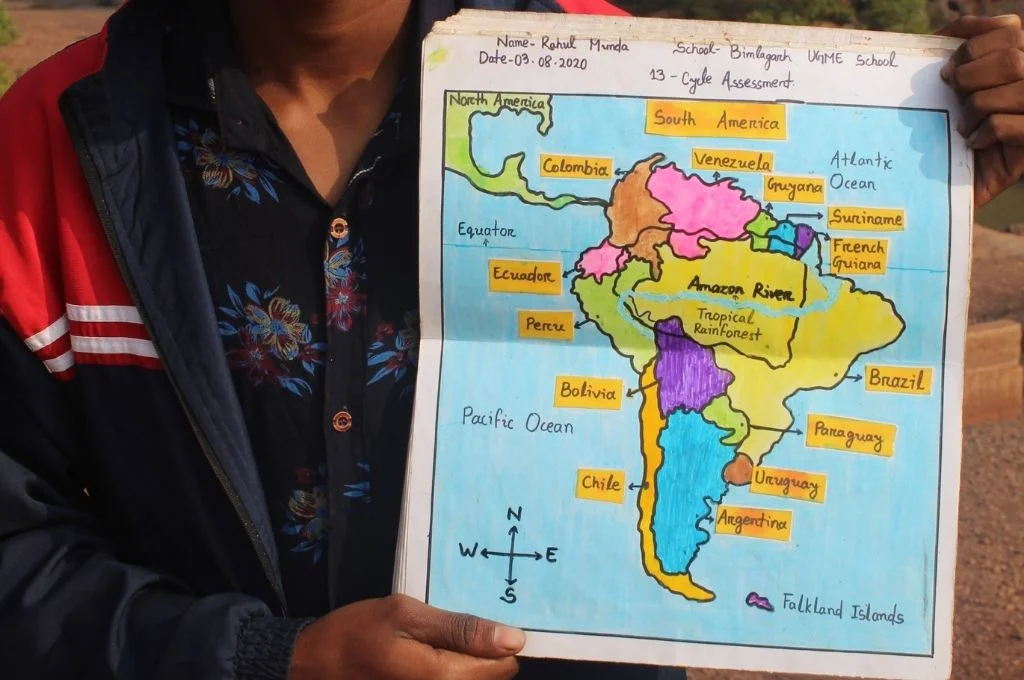 Name- Rahul Munda
School- Bimlagarh UGME School
Date-03.08.2020
13 - Cycle Assessment.
North America
South America
Colombia
Venezuela
Atlantic
Ocean
Guyana
Suriname
Equator
French
Guiana
Ecuador
Amazon River
Tropical
Rainforest
Peru
Brazil
Bolivia
Pacific Ocean
Paraguay
Chile
Uruguay
Argentina
N
W
E
S
Falkland Islands